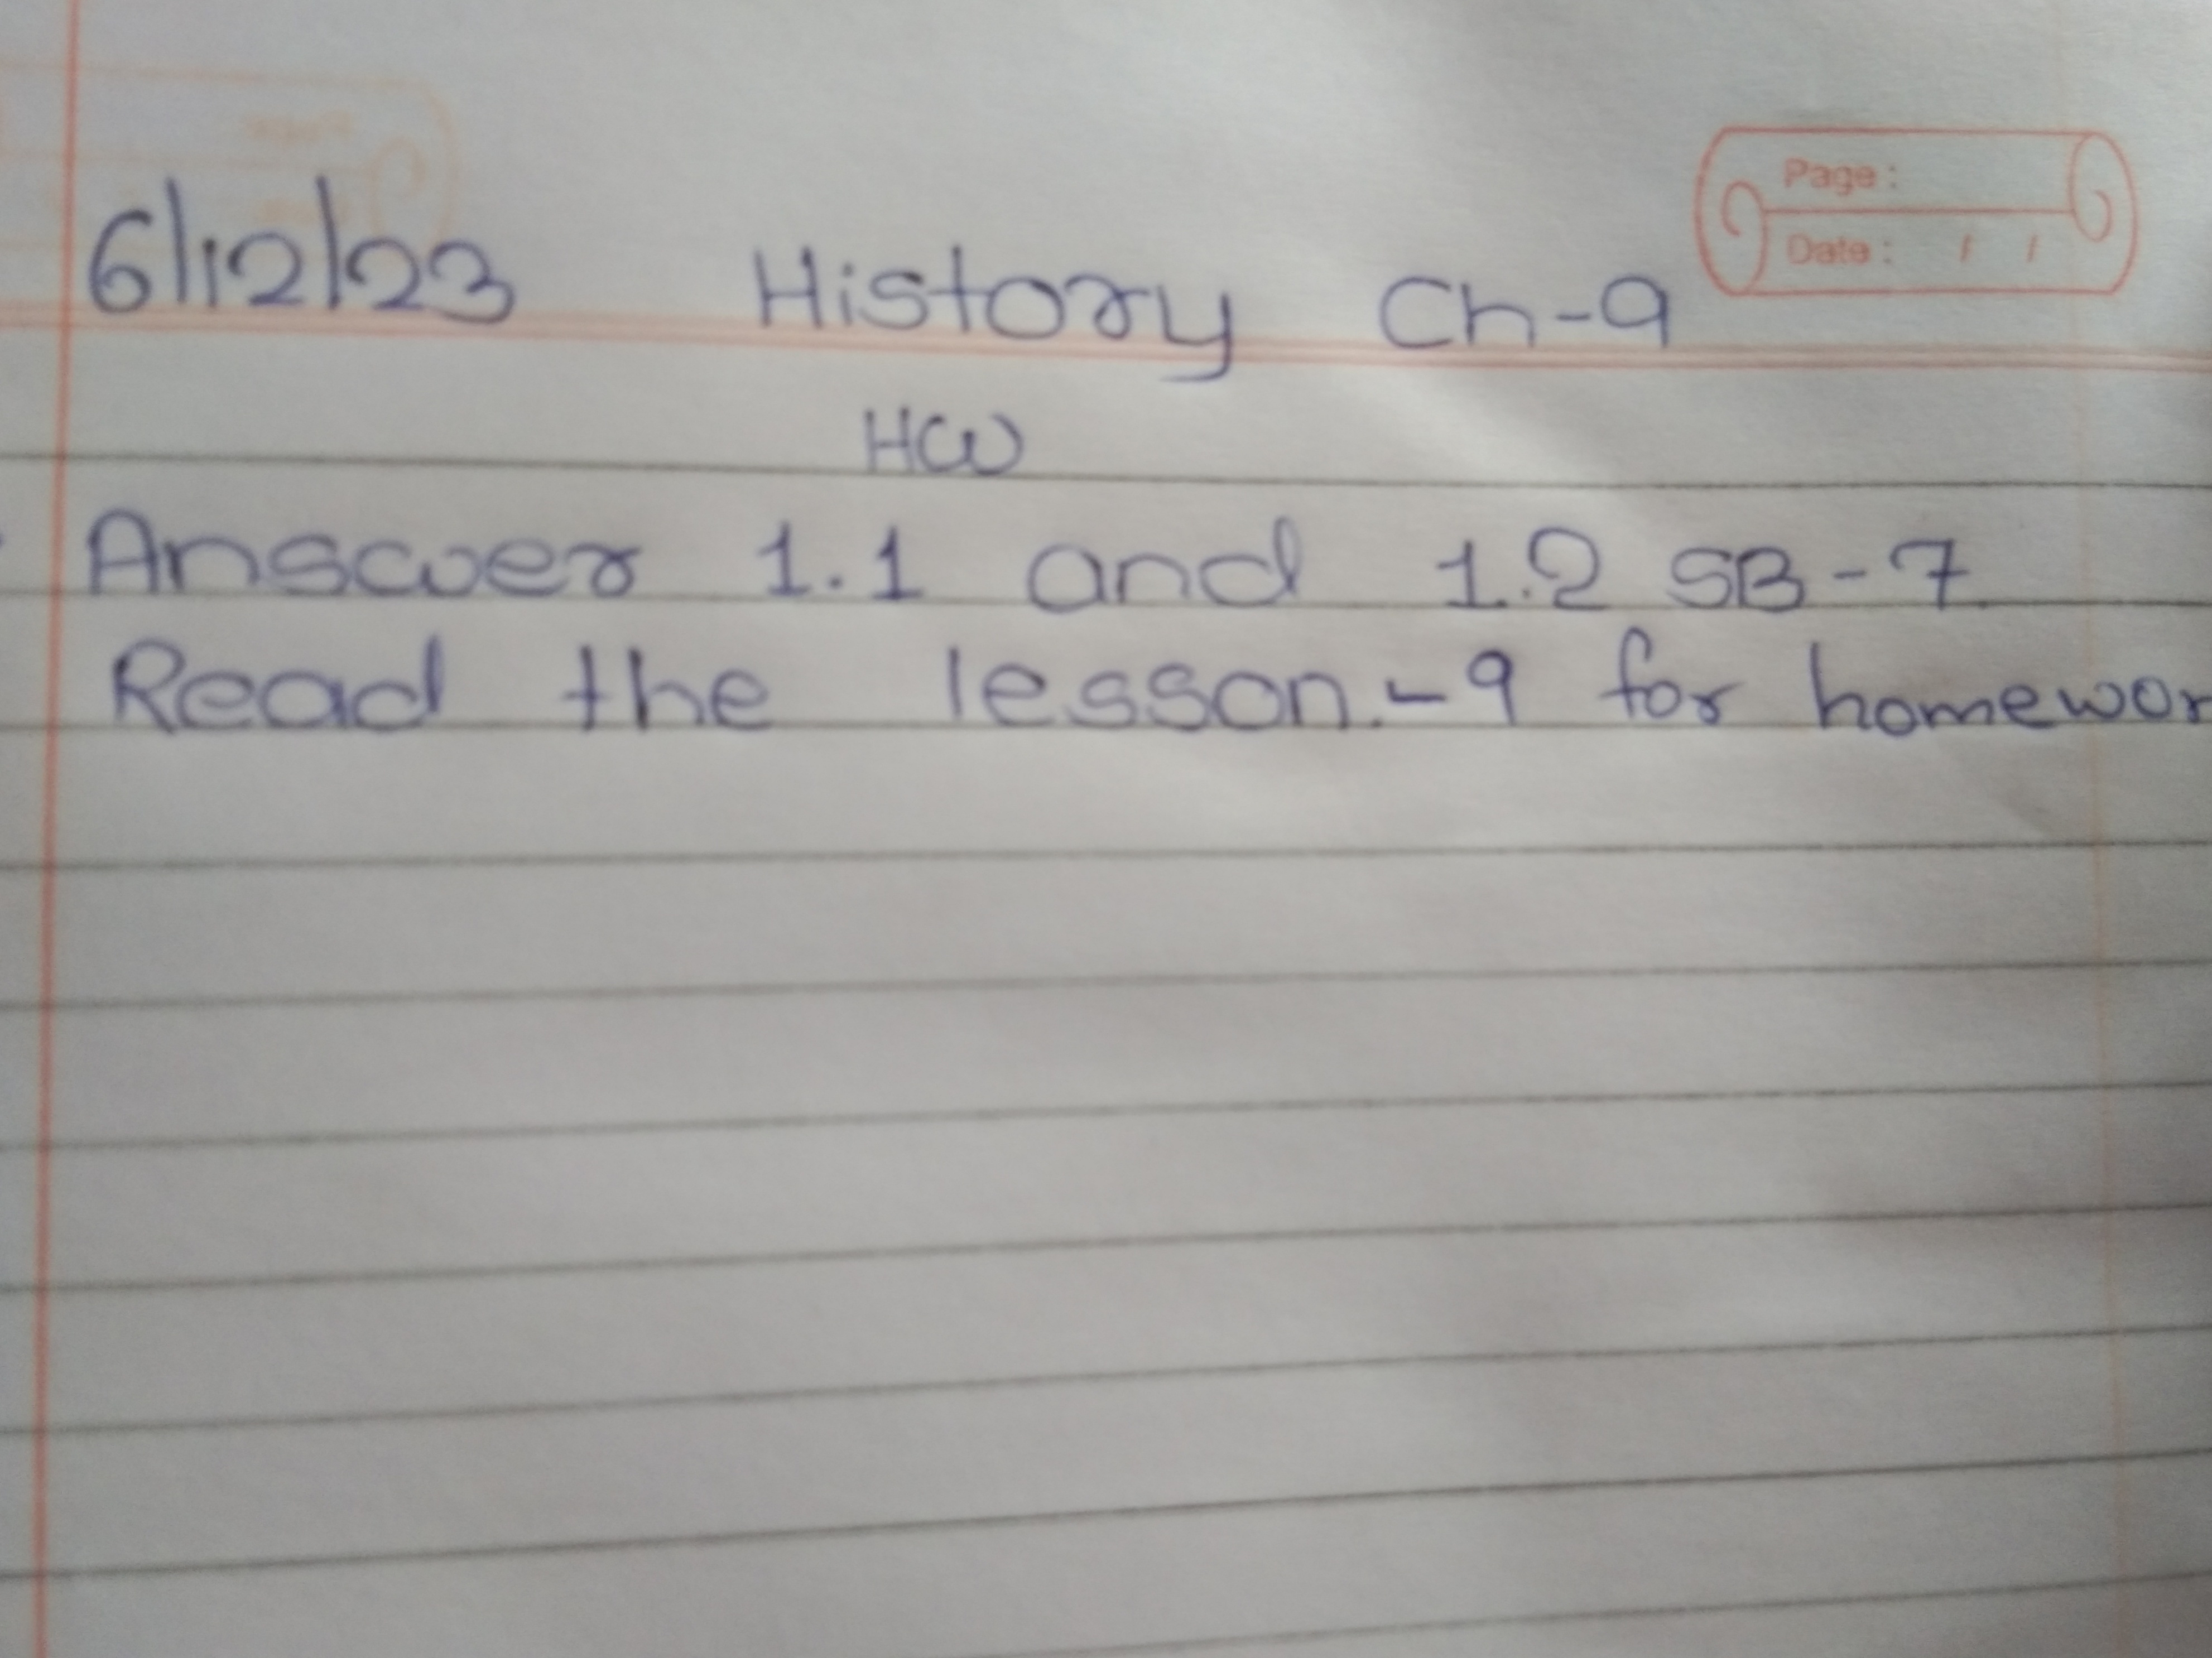 Page :
Date : / /
6/12/23 History Ch-9
HW
Answer 1.1 and 1.2 SB-7
Read the lesson.-9 for homewor